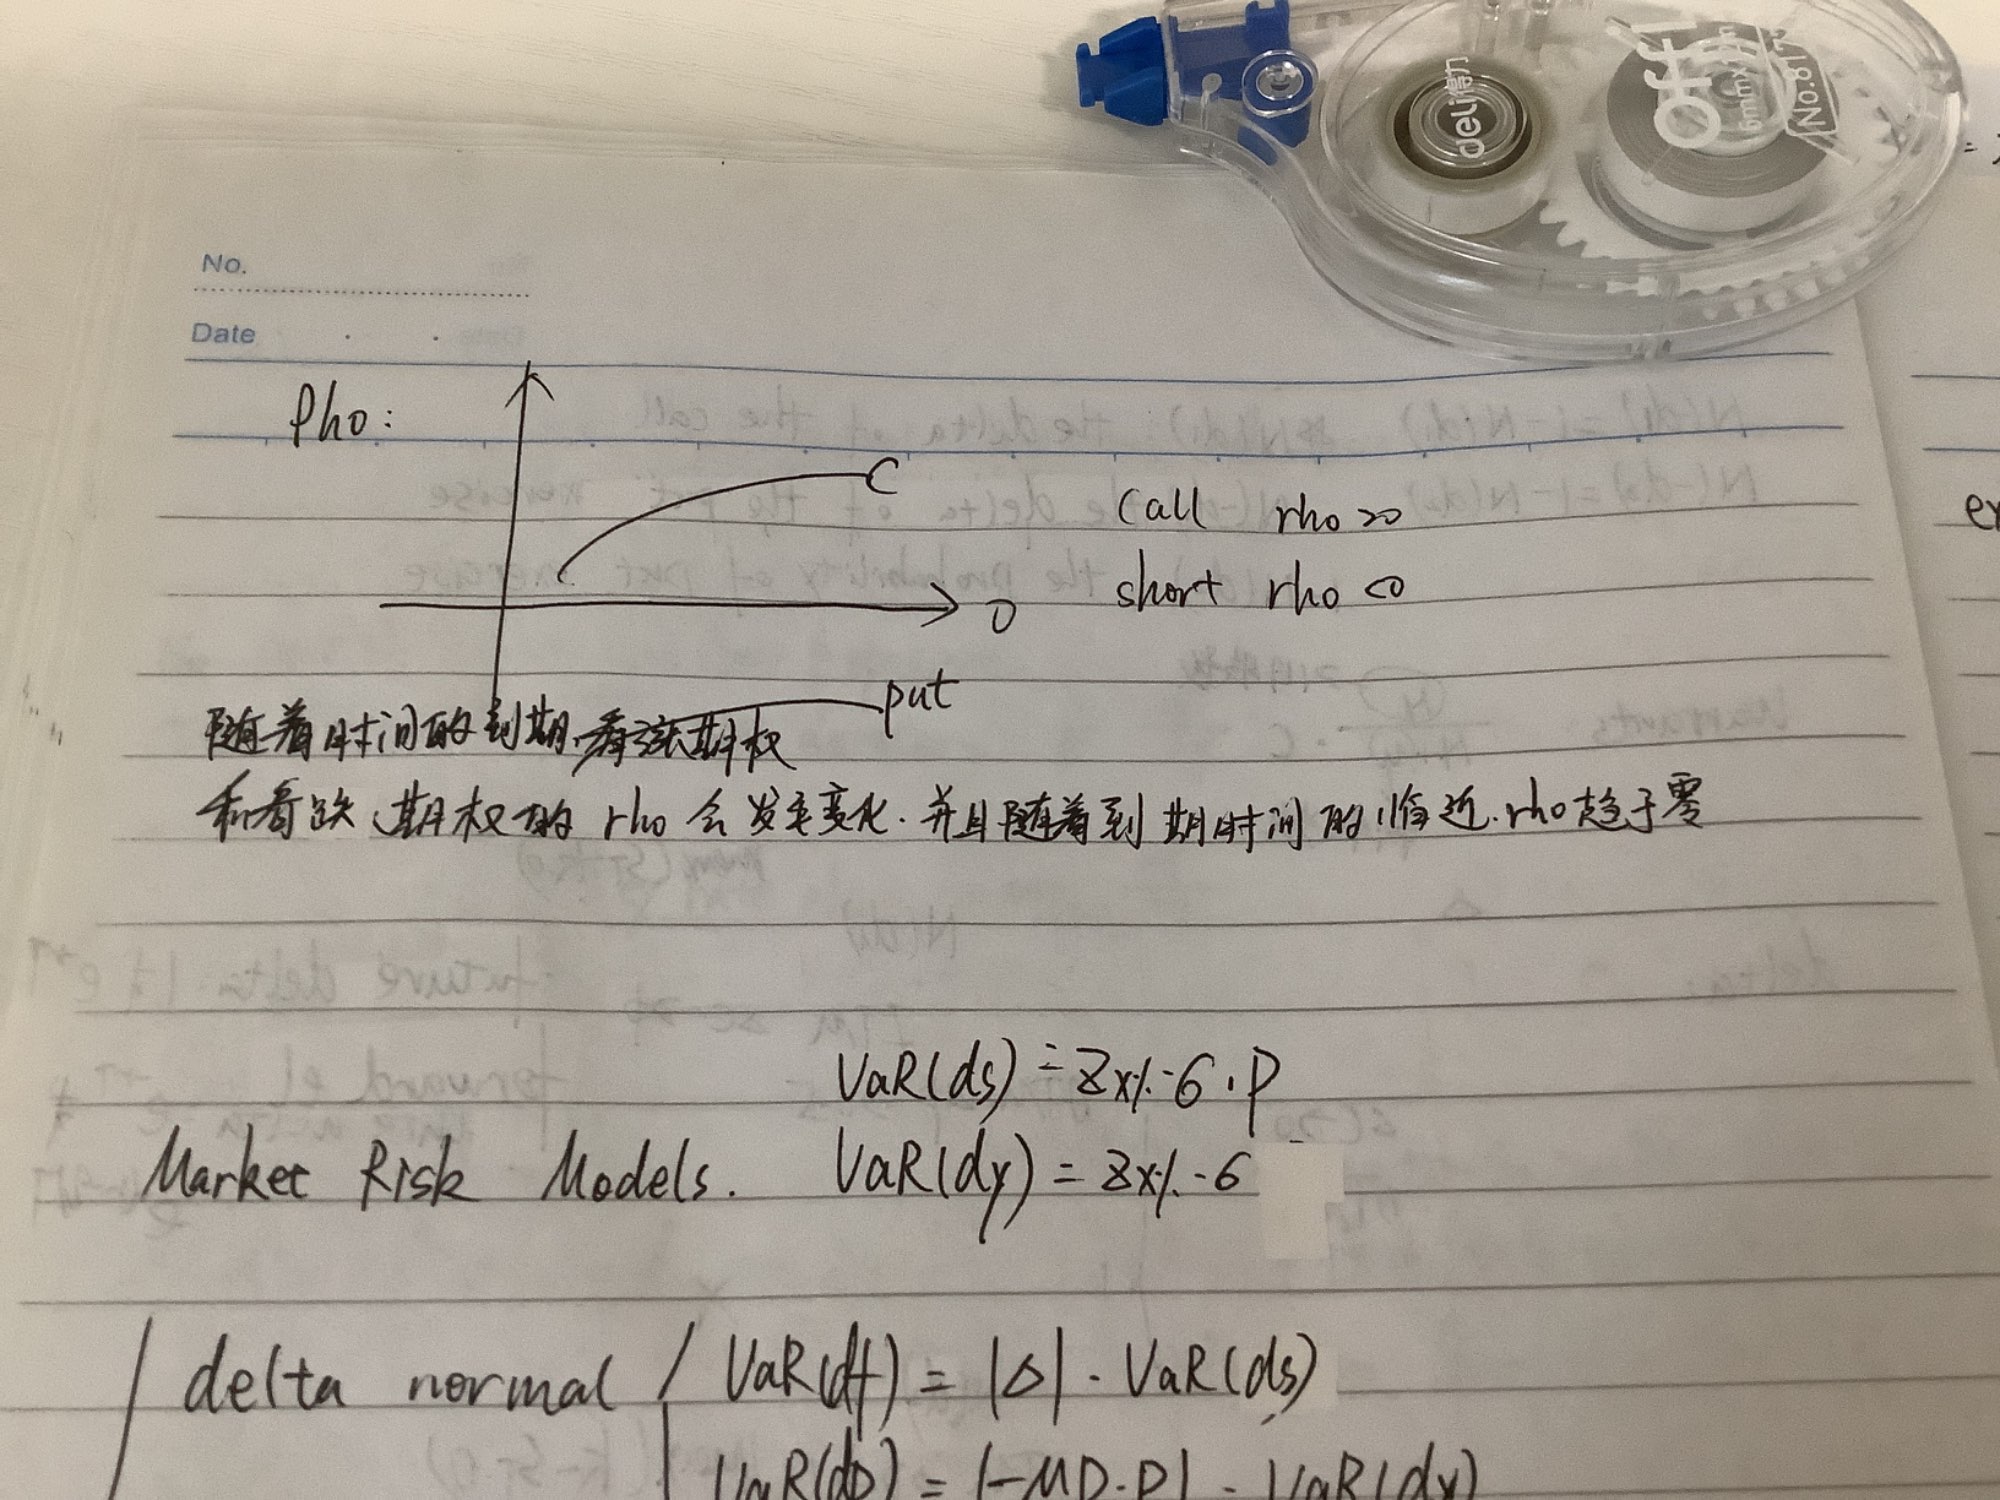 deli得力
No.
Date
Pho:
C
Call rho >0
short rho <0
0
put
随着时间的到期,看涨期权
和看跌期权的 rho 会发生变化.并且随着到期时间的临近.rho趋于零
VaR(ds) = Zx%·6·P
Market Risk Models. VaR(dy) = Zx%·6
delta normal VaR(df) = |Δ|·VaR(ds)
VaR(dp) = |-MD·P|·VaR(dy)